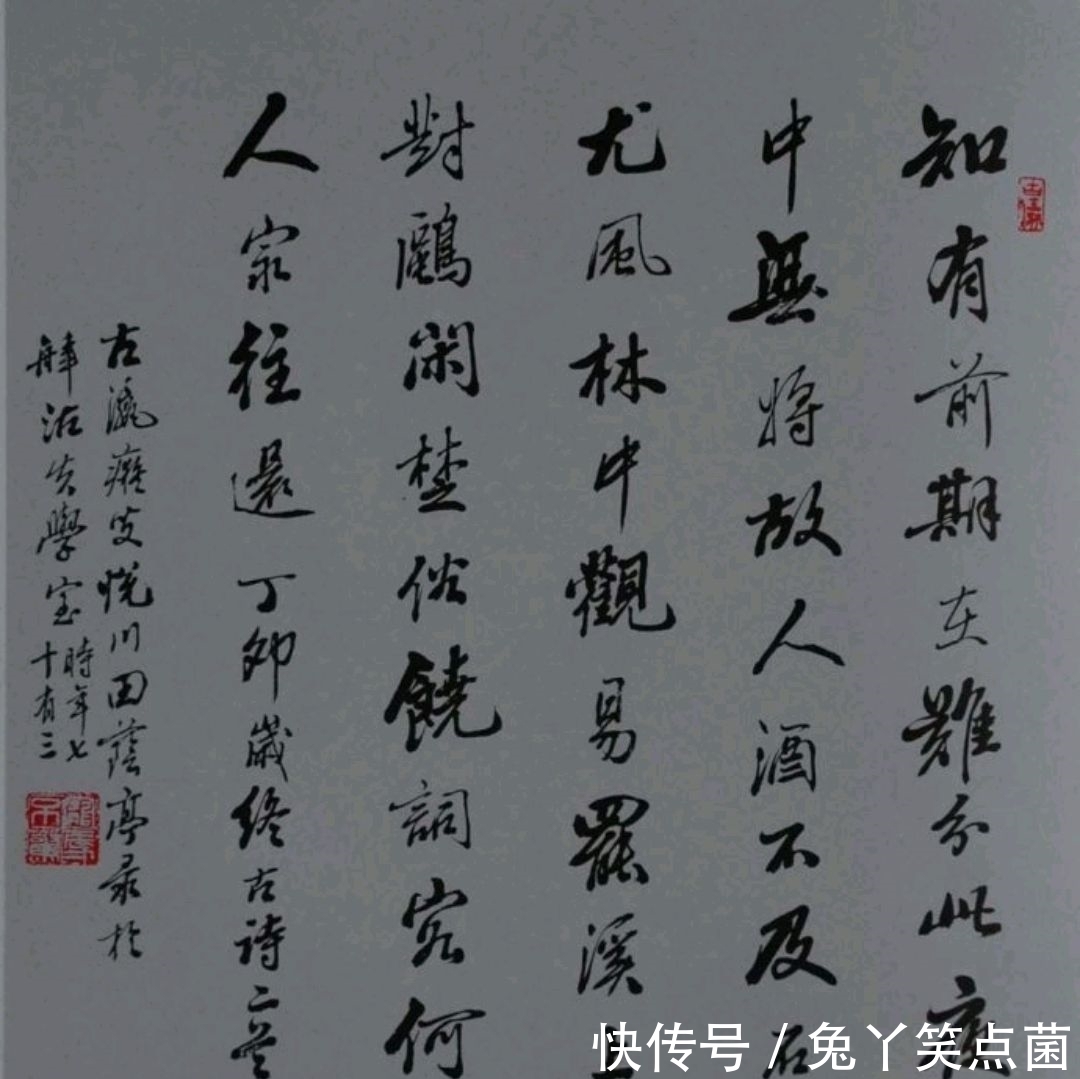 知有前期在難分此夜
中無將故人酒不及石
尤風林中觀易罷溪上
對鷗閑楚俗饒詞客何
人家往還 丁卯歲終古詩二首
古瀛癡叟悦川田蔭亭录於
津沽學室
時年七
十有三
快传号 / 兔丫笑点菌